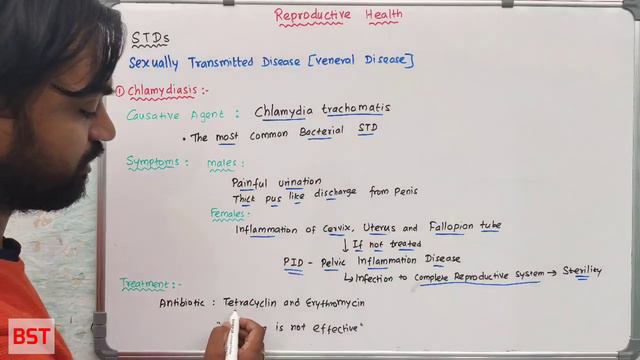 Reproductive Health
STDs
Sexually Transmitted Disease [veneral Disease]
① Chlamydiasis :-
Causative Agent : Chlamydia trachomatis
• The most common Bacterial STD
Symptoms : males :
Painful urination
Thick pus like discharge from Penis
Females :
Inflammation of Cervix, Uterus and Fallopion tube
↓ If not treated
PID - Pelvic Inflammation Disease
↳ Infection to Complete Reproductive System → Sterility
Treatment :-
Antibiotic : Tetracyclin and Erythromycin
is not effective"
BST